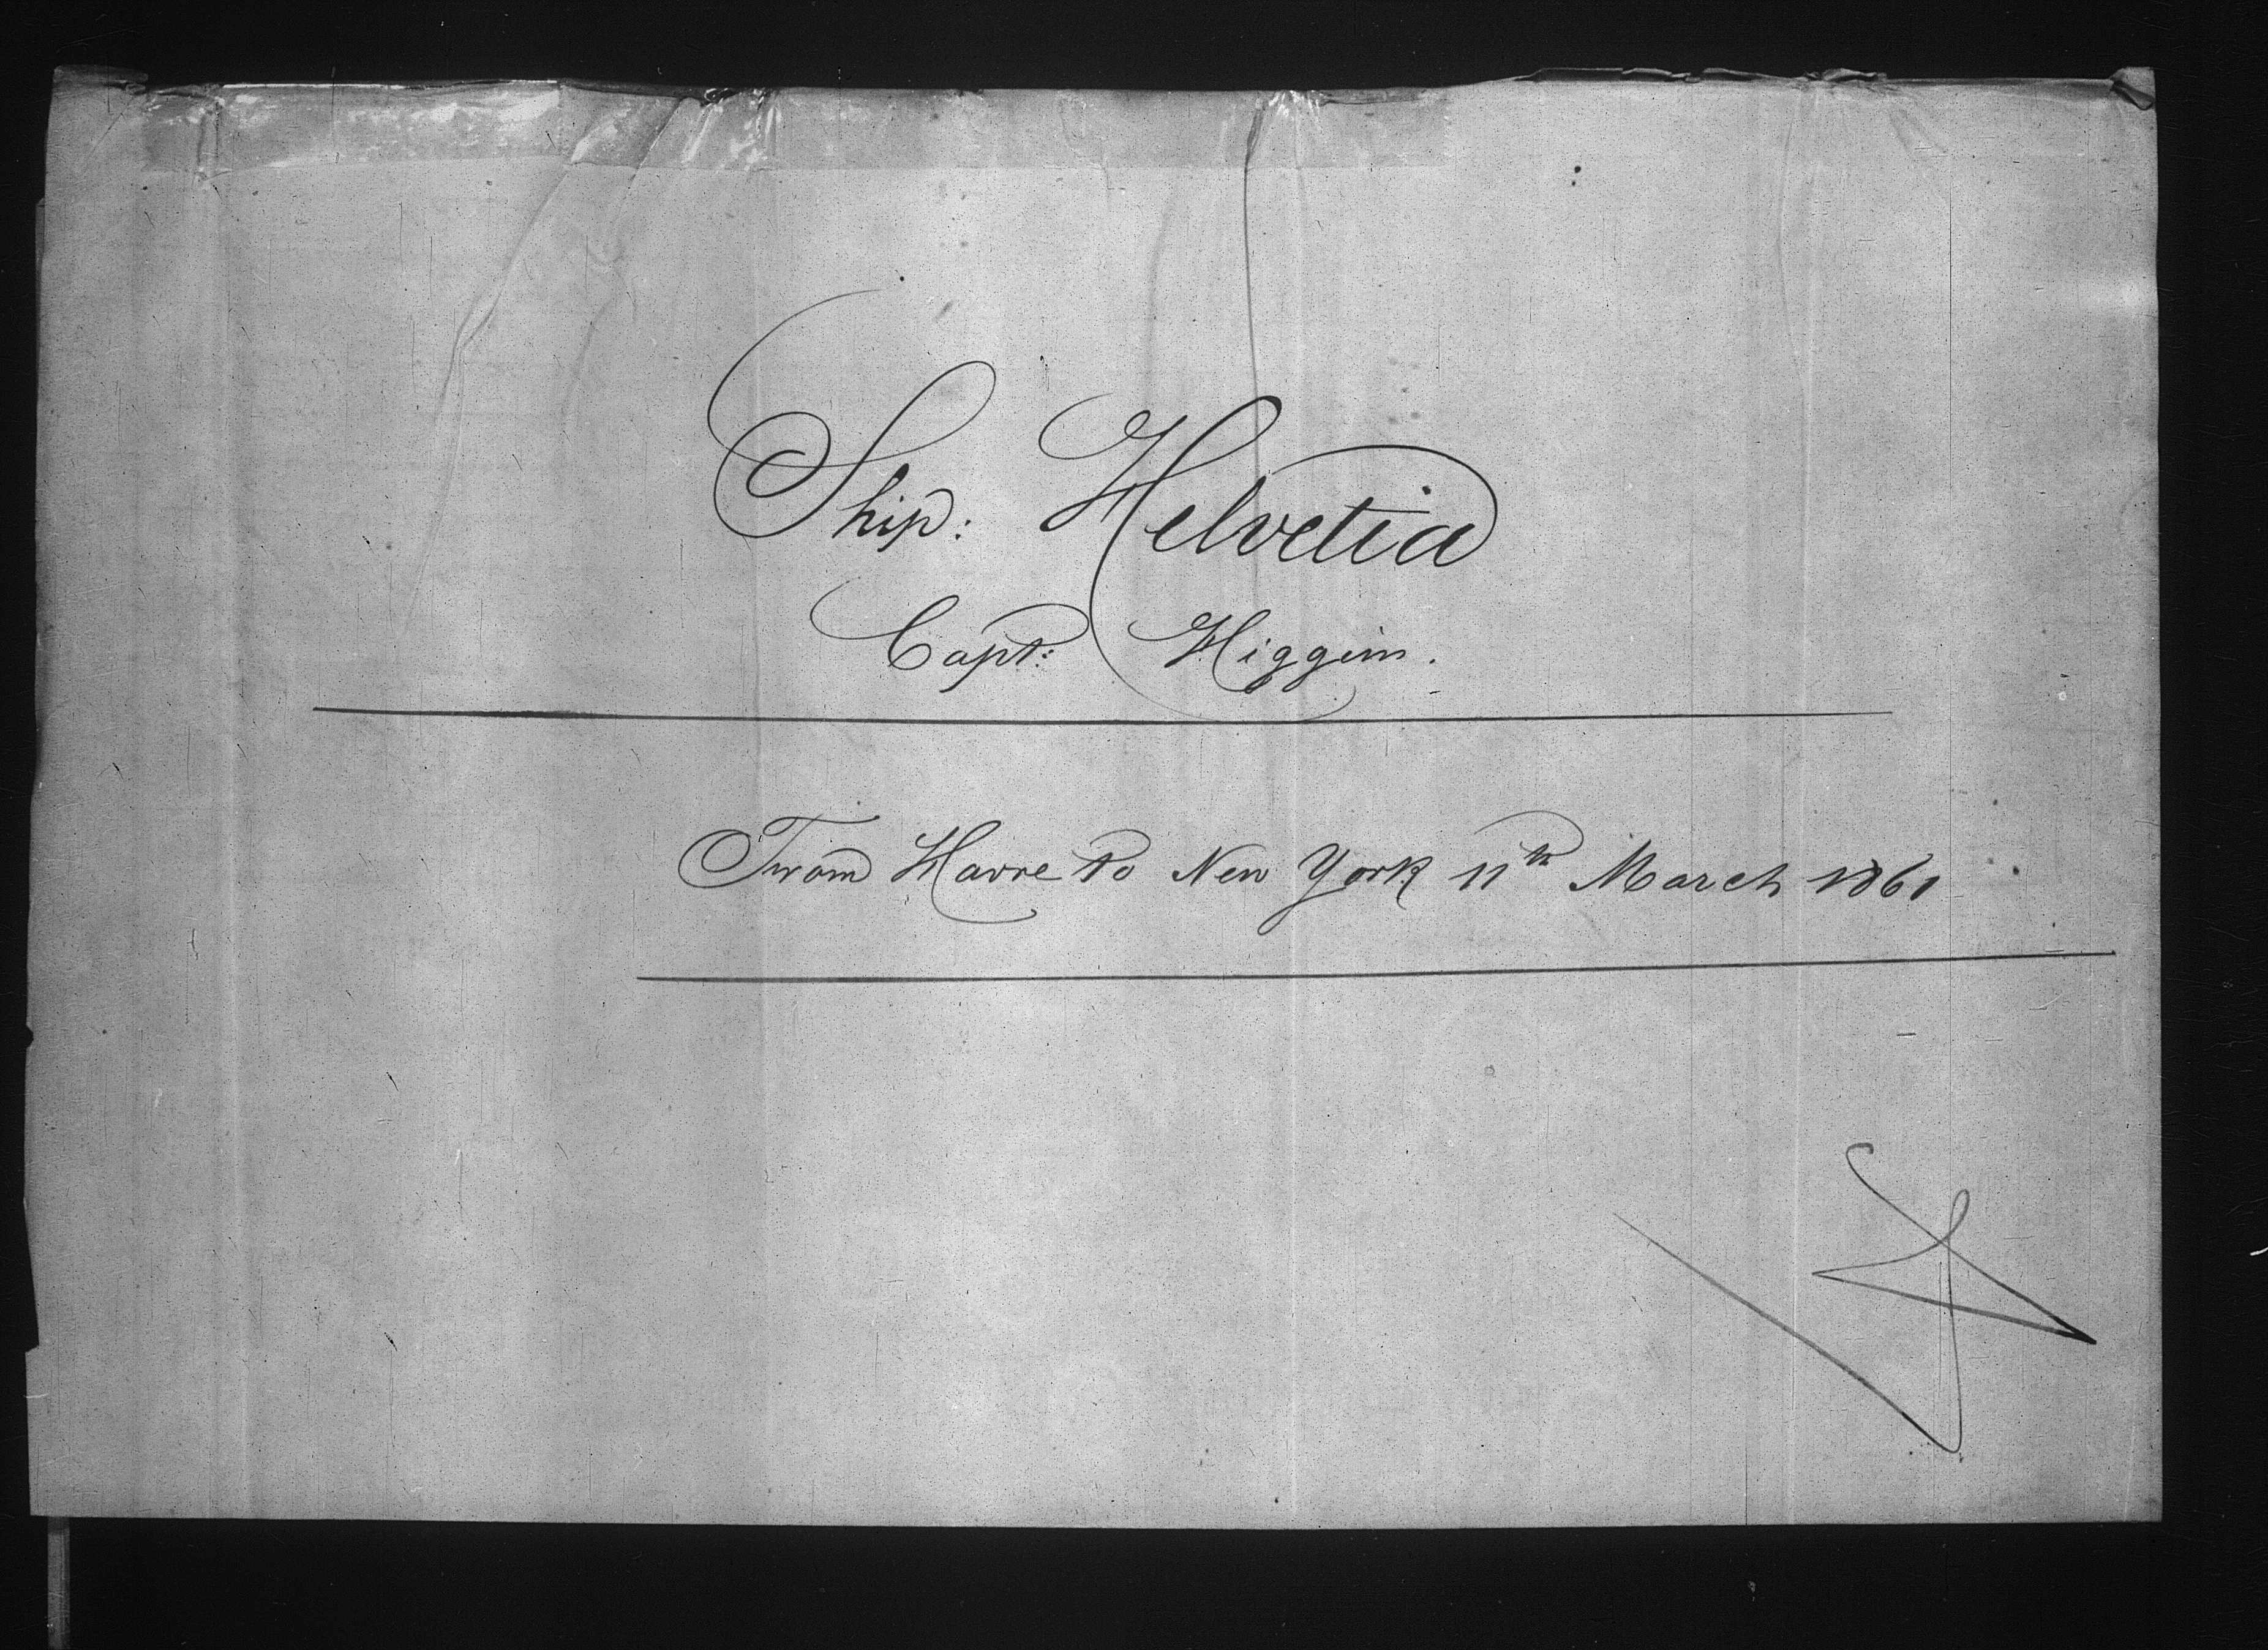 Ship: Helvetia
Capt: Higgins.
From Havre to New York 11th March 1861